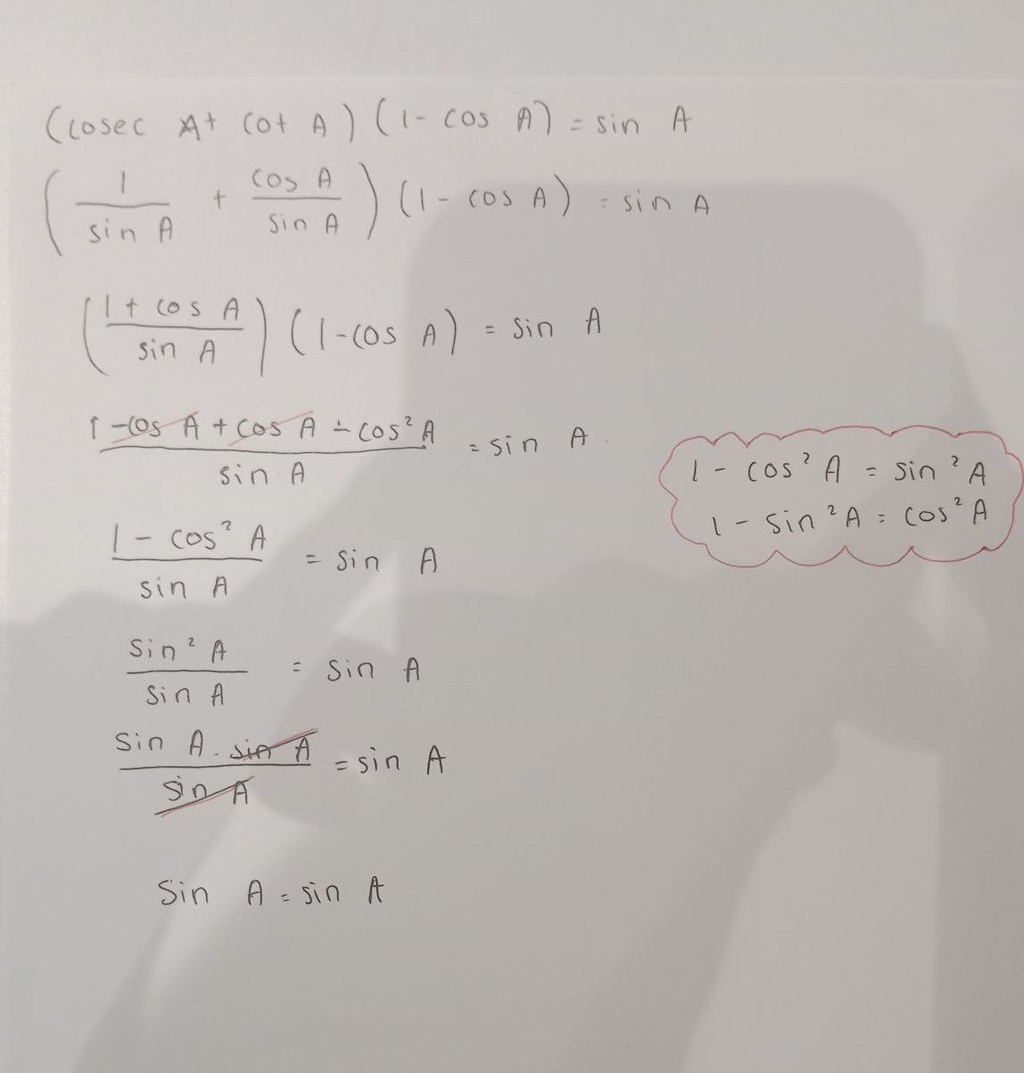 (cosec A + cot A) (1 - cos A) = sin A
(1/sin A + cos A/sin A) (1 - cos A) = sin A
((1 + cos A)/sin A) (1 - cos A) = sin A
(1 - cos A + cos A - cos² A)/sin A = sin A
1 - cos² A = sin² A
1 - sin² A = cos² A
(1 - cos² A)/sin A = sin A
sin² A/sin A = sin A
(sin A . sin A)/sin A = sin A
sin A = sin A